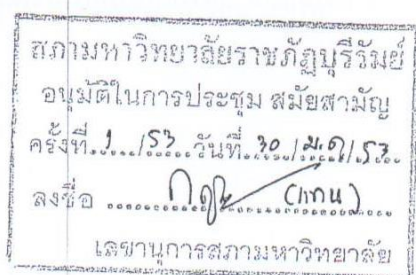 สภามหาวิทยาลัยราชภัฏบุรีรัมย์
อนุมัติในการประชุม สมัยสามัญ
ครั้งที่ 1 /53 วันที่ 30 / ม.ค / 53
ลงชื่อ (แทน)
เลขานุการสภามหาวิทยาลัย